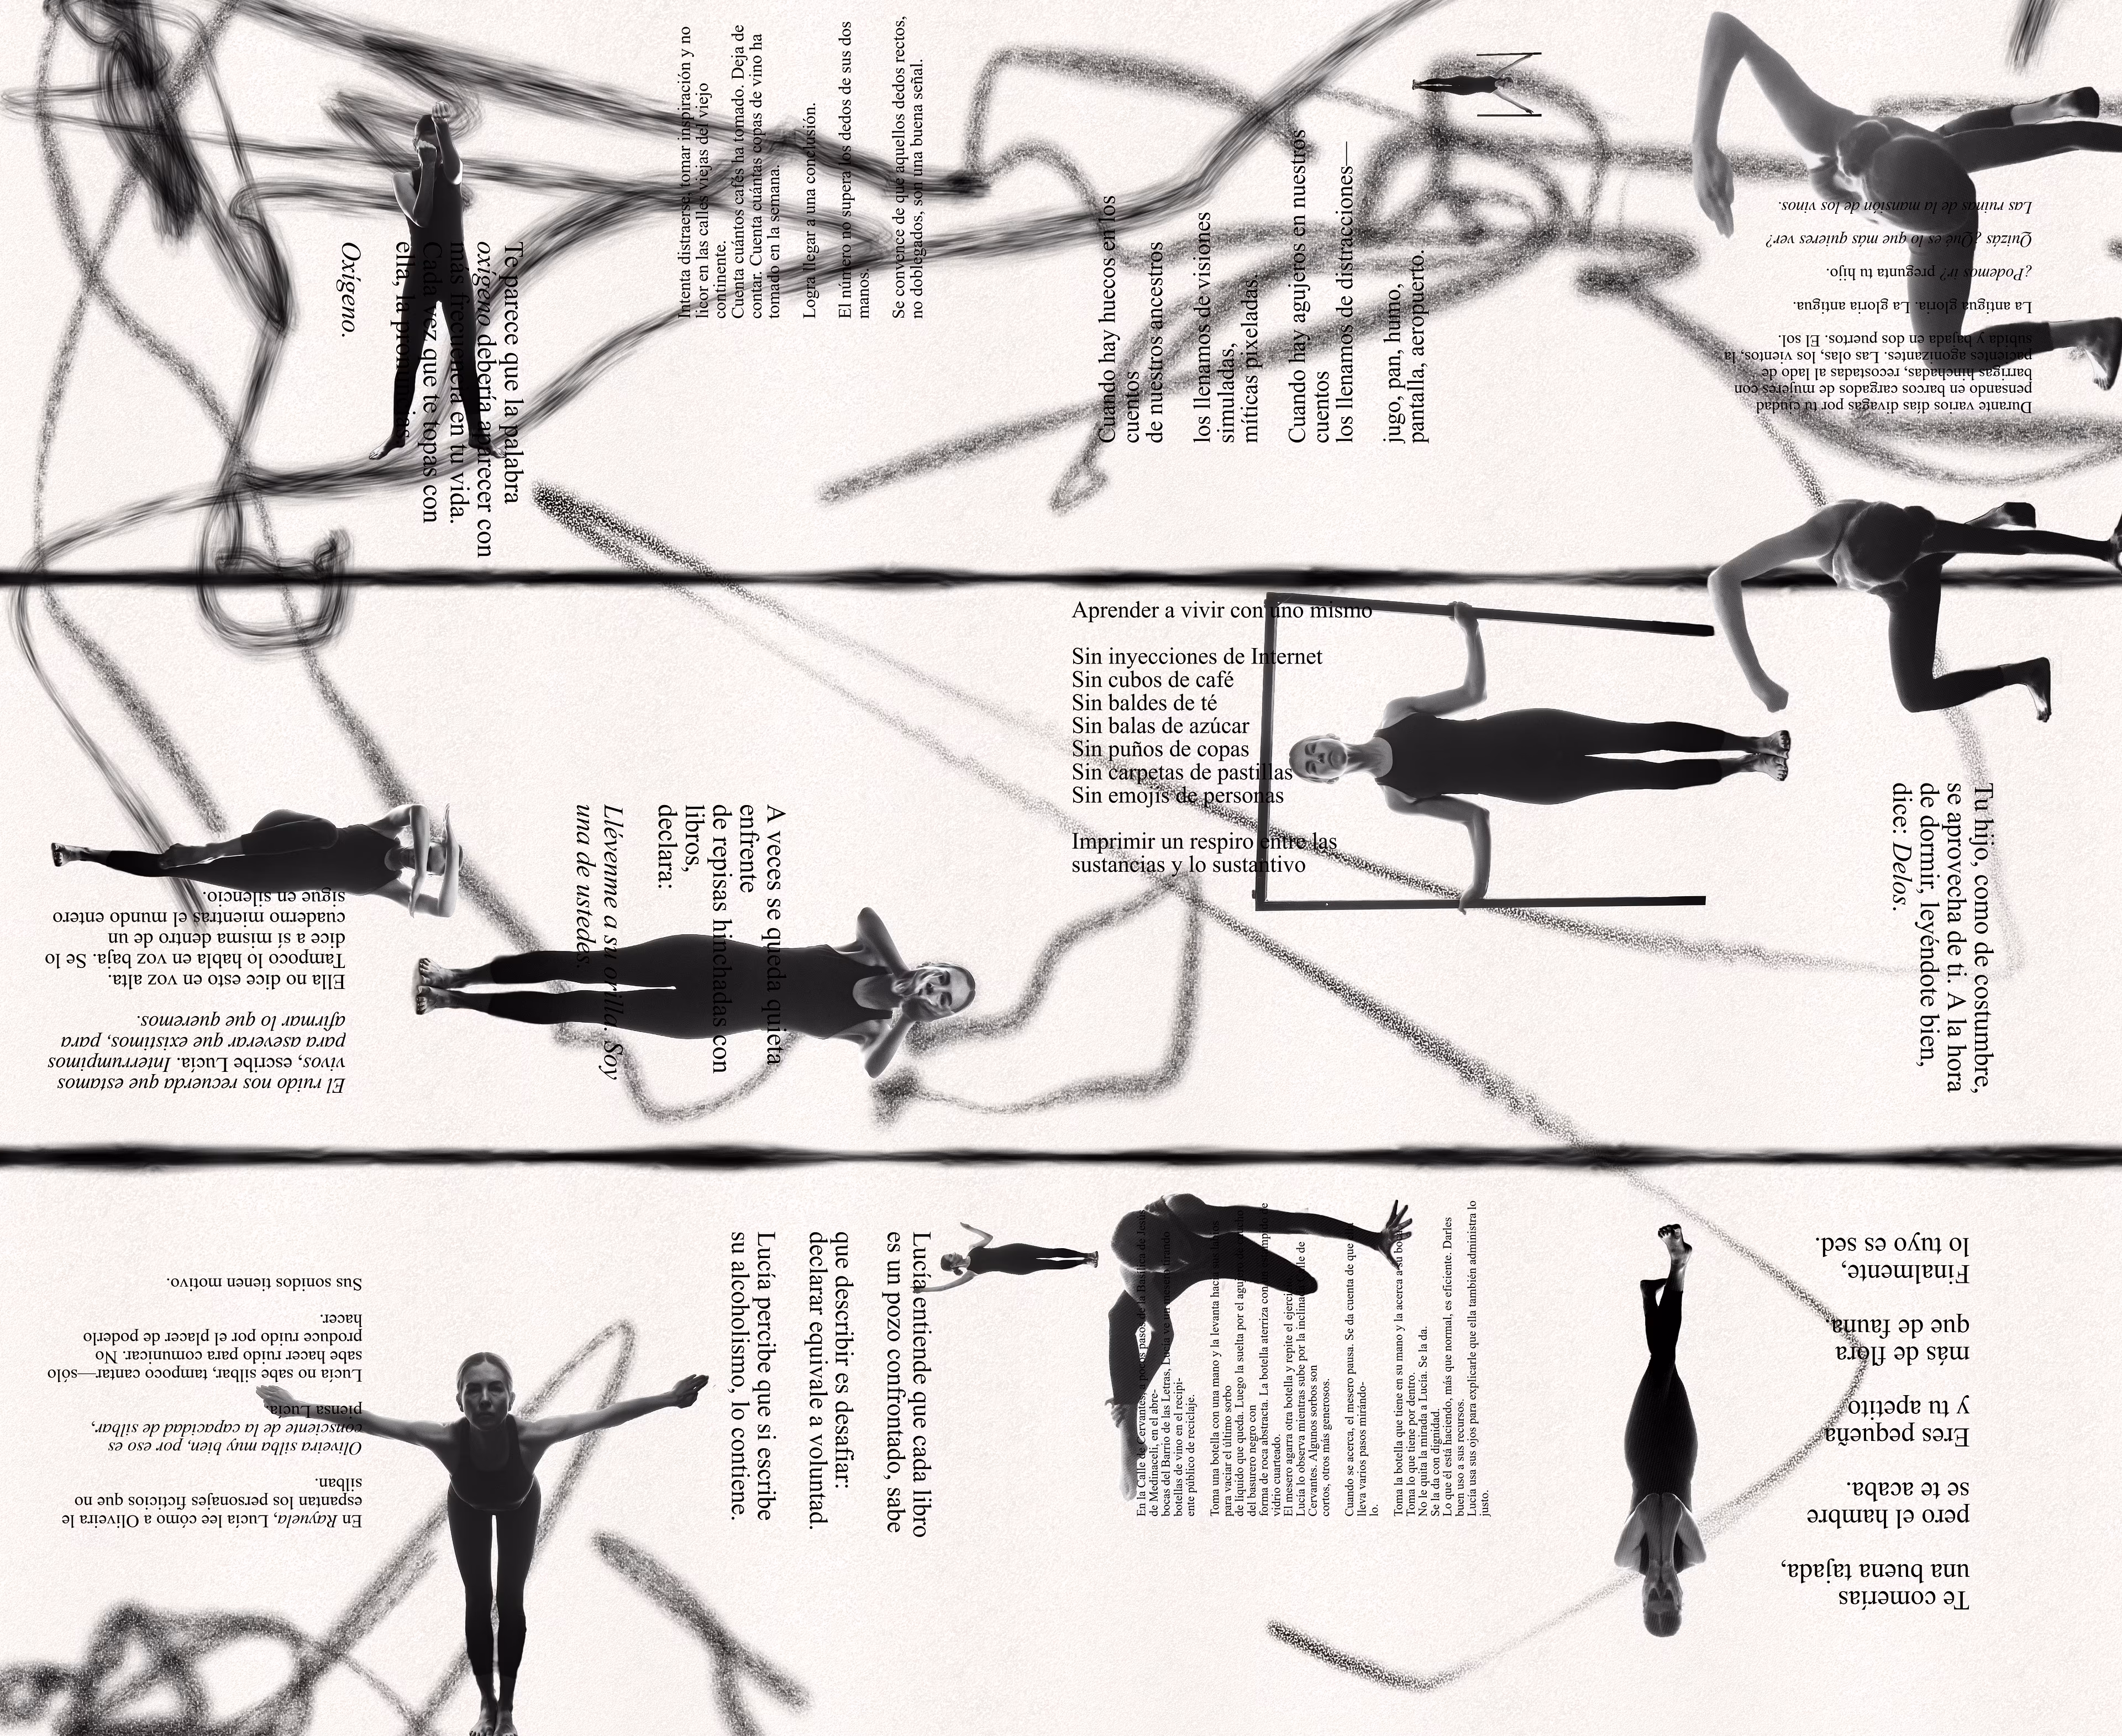 Te parece que la palabra
oxígeno debería aparecer con
más frecuencia en tu vida.
Cada vez que te topas con
ella, la pronuncias.
Oxígeno.
Intenta distraerse, tomar inspiración y no
licor en las calles viejas del viejo
continente.
Cuenta cuántos cafés ha tomado. Deja de
contar. Cuenta cuántas copas de vino ha
tomado en la semana.
Logra llegar a una conclusión.
El número no supera los dedos de sus dos
manos.
Se convence de que aquellos dedos rectos,
no doblegados, son una buena señal.
Cuando hay huecos en los
cuentos
de nuestros ancestros
los llenamos de visiones
simuladas,
míticas pixeladas.
Cuando hay agujeros en nuestros
cuentos
los llenamos de distracciones—
jugo, pan, humo,
pantalla, aeropuerto.
Durante varios días divagas por tu ciudad
pensando en barcos cargados de mujeres con
barrigas hinchadas, recostadas al lado de
pacientes agonizantes. Las olas, los vientos, la
subida y bajada en dos puertos. El sol.
La antigua gloria. La gloria antigua.
¿Podemos ir? pregunta tu hijo.
Quizás ¿Qué es lo que más quieres ver?
Las ruinas de la mansión de los vinos.
El ruido nos recuerda que estamos
vivos, escribe Lucía. Interrumpimos
para aseverar que existimos, para
afirmar lo que queremos.
Ella no dice esto en voz alta.
Tampoco lo habla en voz baja. Se lo
dice a sí misma dentro de un
cuaderno mientras el mundo entero
sigue en silencio.
A veces se queda quieta
enfrente
de repisas hinchadas con
libros,
declara:
Llévenme a su orilla. Soy
una de ustedes.
Aprender a vivir con uno mismo
Sin inyecciones de Internet
Sin cubos de café
Sin baldes de té
Sin balas de azúcar
Sin puños de copas
Sin carpetas de pastillas
Sin emojis de personas
Imprimir un respiro entre las
sustancias y lo sustantivo
Tu hijo, como de costumbre,
se aprovecha de ti. A la hora
de dormir, leyéndote bien,
dice: Delos.
En Rayuela, Lucía lee cómo a Oliveira le
espantan los personajes ficticios que no
silban.
Oliveira silba muy bien, por eso es
consciente de la capacidad de silbar,
piensa Lucía.
Lucía no sabe silbar, tampoco cantar—sólo
sabe hacer ruido para comunicar. No
produce ruido por el placer de poderlo
hacer.
Sus sonidos tienen motivo.
Lucía entiende que cada libro
es un pozo confrontado, sabe
que describir es desafiar:
declarar equivale a voluntad.
Lucía percibe que si escribe
su alcoholismo, lo contiene.
En la Calle de Cervantes, a pocos pasos de la Basílica de Jesús
de Medinaceli, en el abre-
bocas del Barrio de las Letras, Lucía ve un mesero tirando
botellas de vino en el recipi-
ente público de reciclaje.
Toma una botella con una mano y la levanta hacia sus labios
para vaciar el último sorbo
de líquido que queda. Luego la suelta por el agujero
del basurero negro con
forma de roca abstracta. La botella aterriza con
vidrio cuarteado.
El mesero agarra otra botella y repite el ejercicio.
Lucía lo observa mientras sube por la inclinada Calle de
Cervantes. Algunos sorbos son
cortos, otros más generosos.
Cuando se acerca, el mesero pausa. Se da cuenta de que
lleva varios pasos mirándo-
lo.
Toma la botella que tiene en su mano y la acerca a su boca.
Toma lo que tiene por dentro.
No le quita la mirada a Lucía. Se la da.
Se la da con dignidad.
Lo que él está haciendo, más que normal, es eficiente. Darles
buen uso a sus recursos.
Lucía usa sus ojos para explicarle que ella también administra lo
justo.
Te comerías
una buena tajada,
pero el hambre
se te acaba.
Eres pequeña
y tu apetito
más de flora
que de fauna.
Finalmente,
lo tuyo es sed.